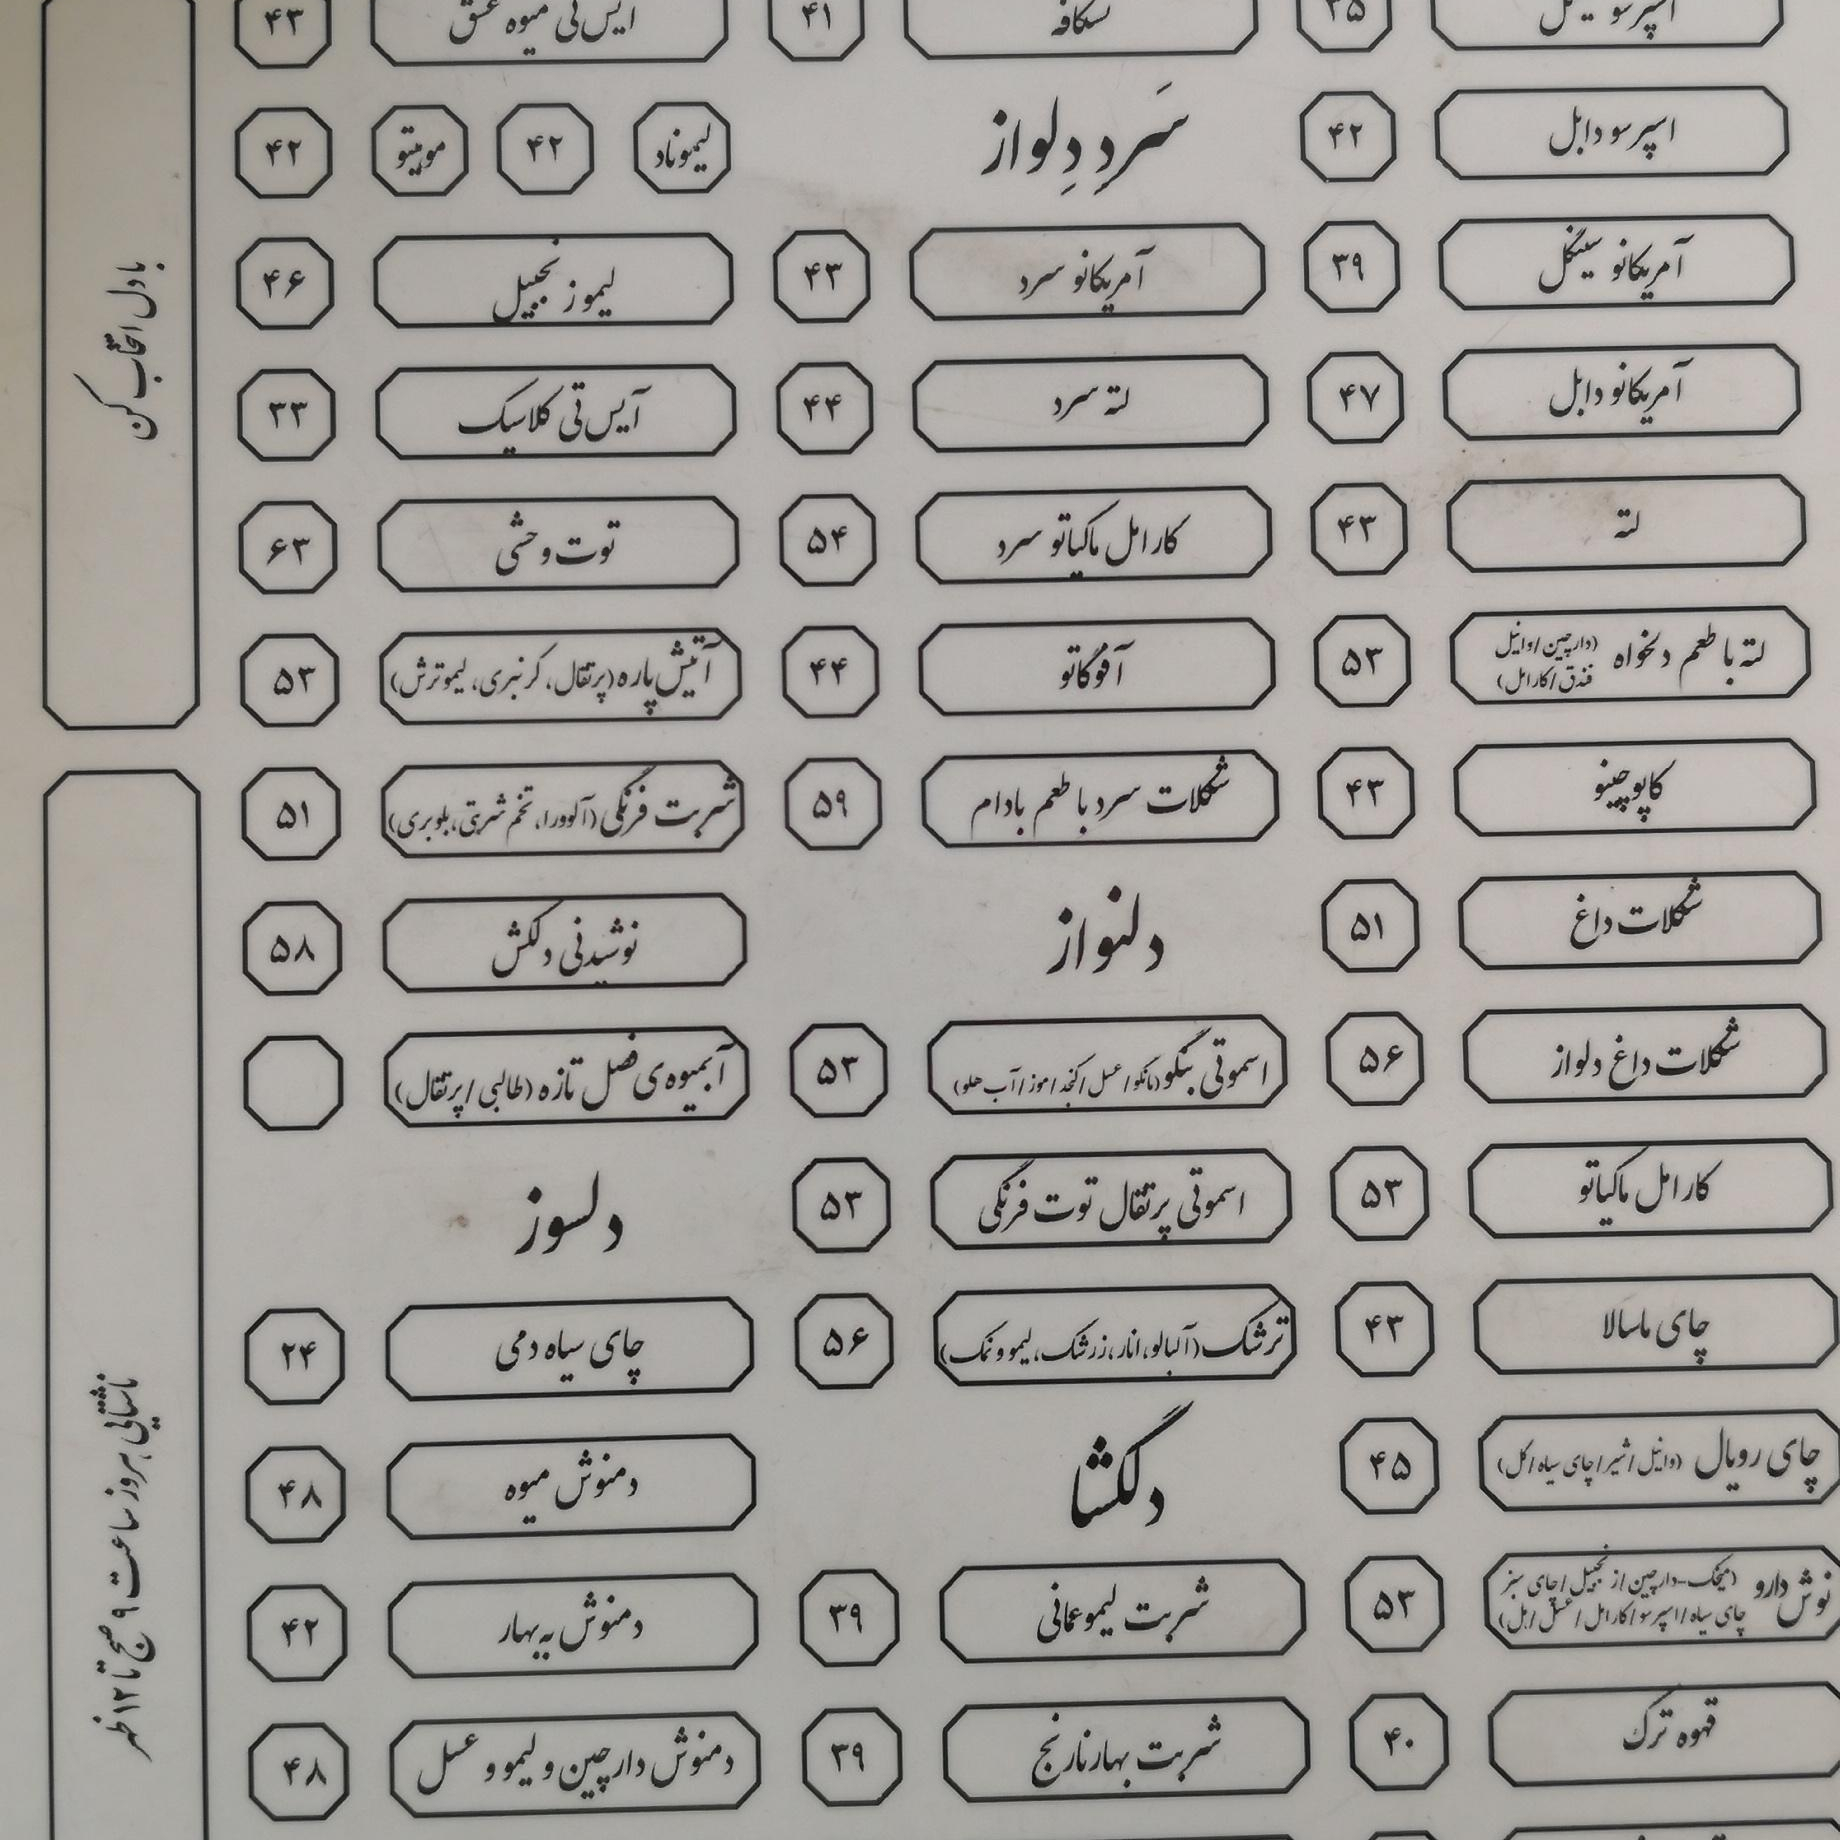 اسپرسو سینگل
۳۵
اسپرسو دابل
۴۲
آمریکانو سینگل
۳۹
آمریکانو دابل
۴۷
لته
۴۳
لته با طعم دلخواه (دارچین / وانیل
فندق / کارامل)
۵۳
کاپوچینو
۴۳
شکلات داغ
۵۱
شکلات داغ دلواز
۵۶
کارامل ماکیاتو
۵۳
چای ماسالا
۴۳
چای رویال (وانیل / شیر / چای سیاه / گل)
۴۵
نوش دارو (میخک-دارچین / زنجبیل / چای سبز
چای سیاه / اسپرسو / کارامل / عسل / هل)
۵۳
قهوه ترک
۴۰
نسکافه
۴۱
سَردِ دِلواز
آمریکانو سرد
۴۳
لته سرد
۴۴
کارامل ماکیاتو سرد
۵۴
آفوگاتو
۴۴
شکلات سرد با طعم بادام
۵۹
دلنواز
اسموتی بنگو (مانگو / عسل / کنجد / موز / آب هلو)
۵۳
اسموتی پرتقال توت فرنگی
۵۳
ترشک (آلبالو، انار، زرشک، لیمو و نمک)
۵۶
دلگشا
شربت لیمو عمانی
۳۹
شربت بهارنارنج
۳۹
آیس تی میوه عشق
۴۳
لیموناد
۴۲
موهیتو
۴۲
لیمو زنجبیل
۴۶
آیس تی کلاسیک
۳۳
توت وحشی
۶۳
آتیش پاره (پرتقال، کرنبری، لیموترش)
۵۳
شربت فرنگی (آلوورا، تخم شربتی، بلوبری)
۵۱
نوشیدنی دلکش
۵۸
آبمیوه‌ی فصل تازه (طالبی / پرتقال)
دلسوز
چای سیاه دمی
۲۴
دمنوش میوه
۴۸
دمنوش به بهار
۴۲
دمنوش دارچین و لیمو و عسل
۴۸
با دل انتخاب کن
ناشتایی هر روز ساعت ۹ صبح تا ۱۲ ظهر